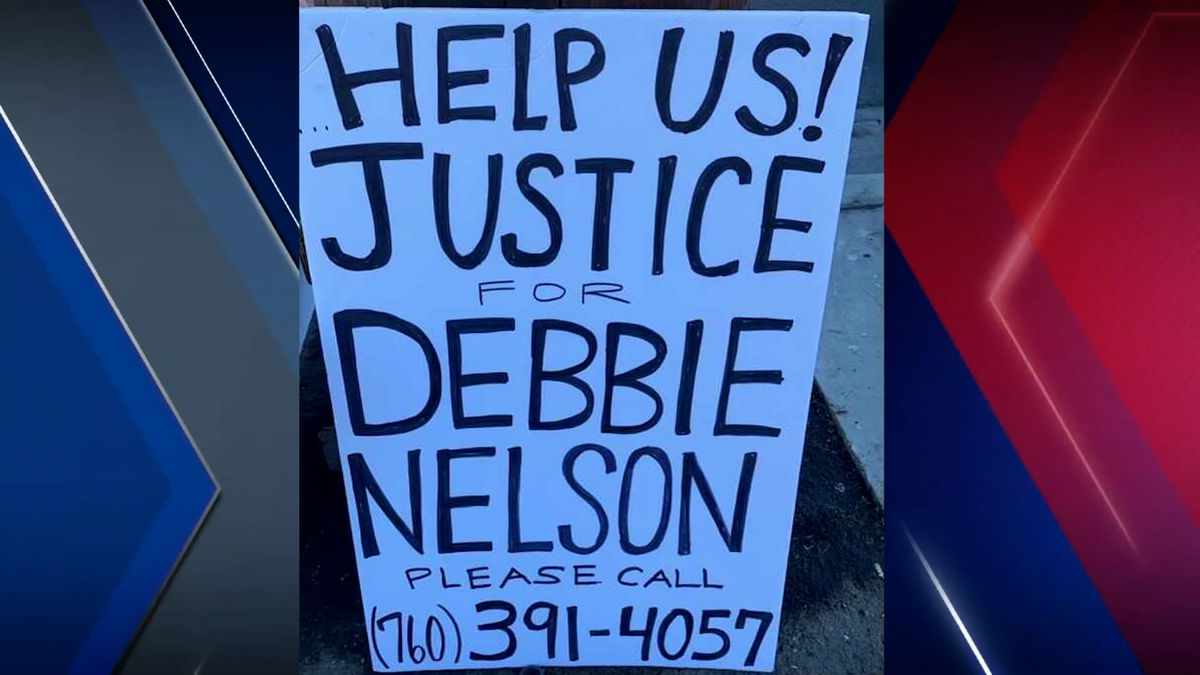 ...HELP US!
JUSTICE
FOR
DEBBIE
NELSON
PLEASE CALL
(760) 391-4057